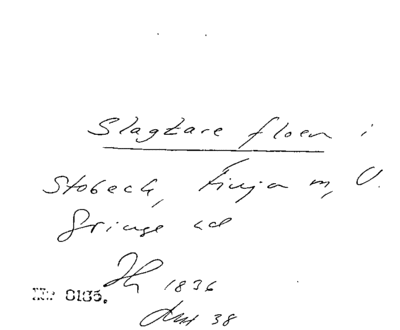 Slagtare floen i
Stobeck, Finja m, V.
Gringe
1836
No 0135.
38